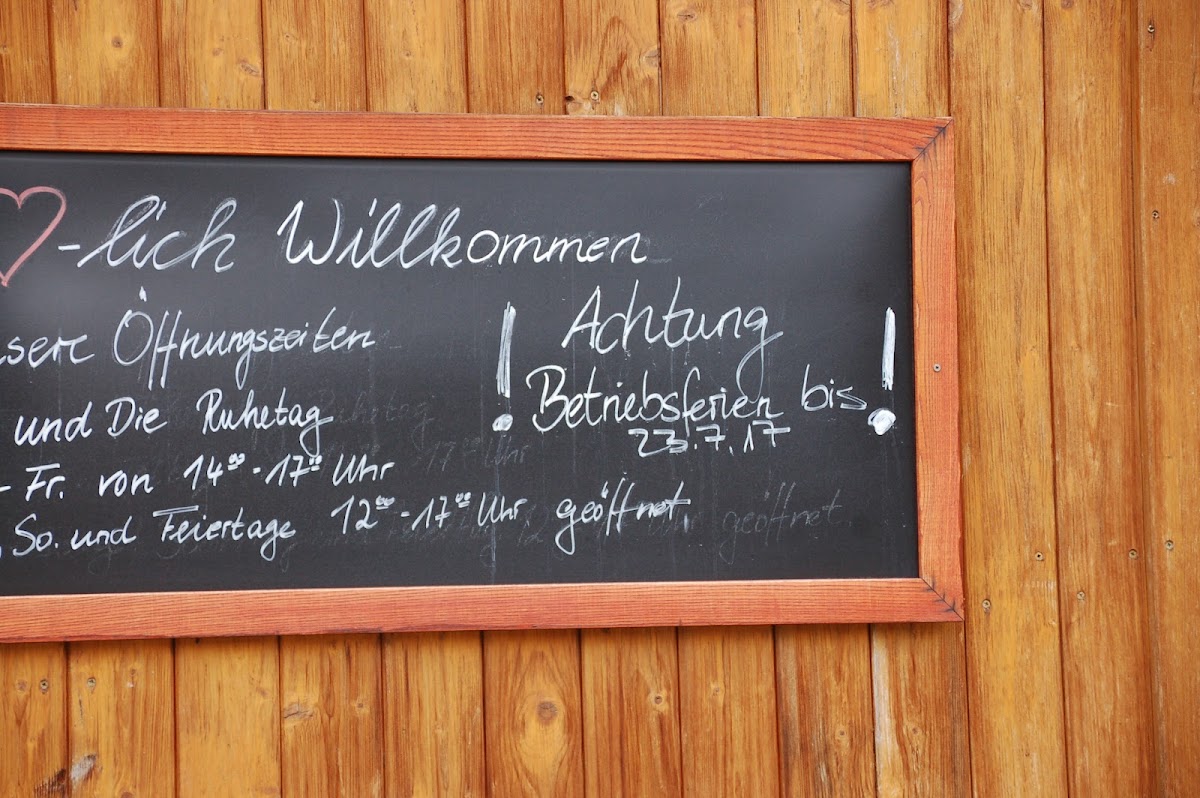 -lich Willkommen
Öffnungszeiten
und Die Ruhetag
- Fr. von 14⁰⁰-17⁰⁰ Uhr
So. und Feiertage 12⁰⁰-17⁰⁰ Uhr geöffnet.
! Achtung !
Betriebsferien bis
23.7.17